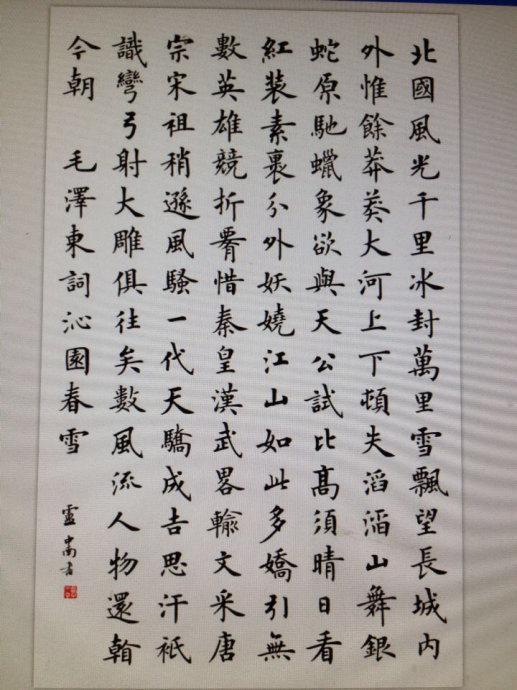 北國風光千里冰封萬里雪飄望長城内
外惟餘莽莽大河上下頓失滔滔山舞銀
蛇原馳蠟象欲與天公試比髙須晴日看
紅装素裹分外妖嬈江山如此多嬌引無
數英雄競折惜秦皇漢武畧輸文采唐
宗宋祖稍遜風騷一代天驕成吉思汗祗
識彎弓射大雕俱往矣數風流人物還
今朝 毛澤東詞沁園春雪